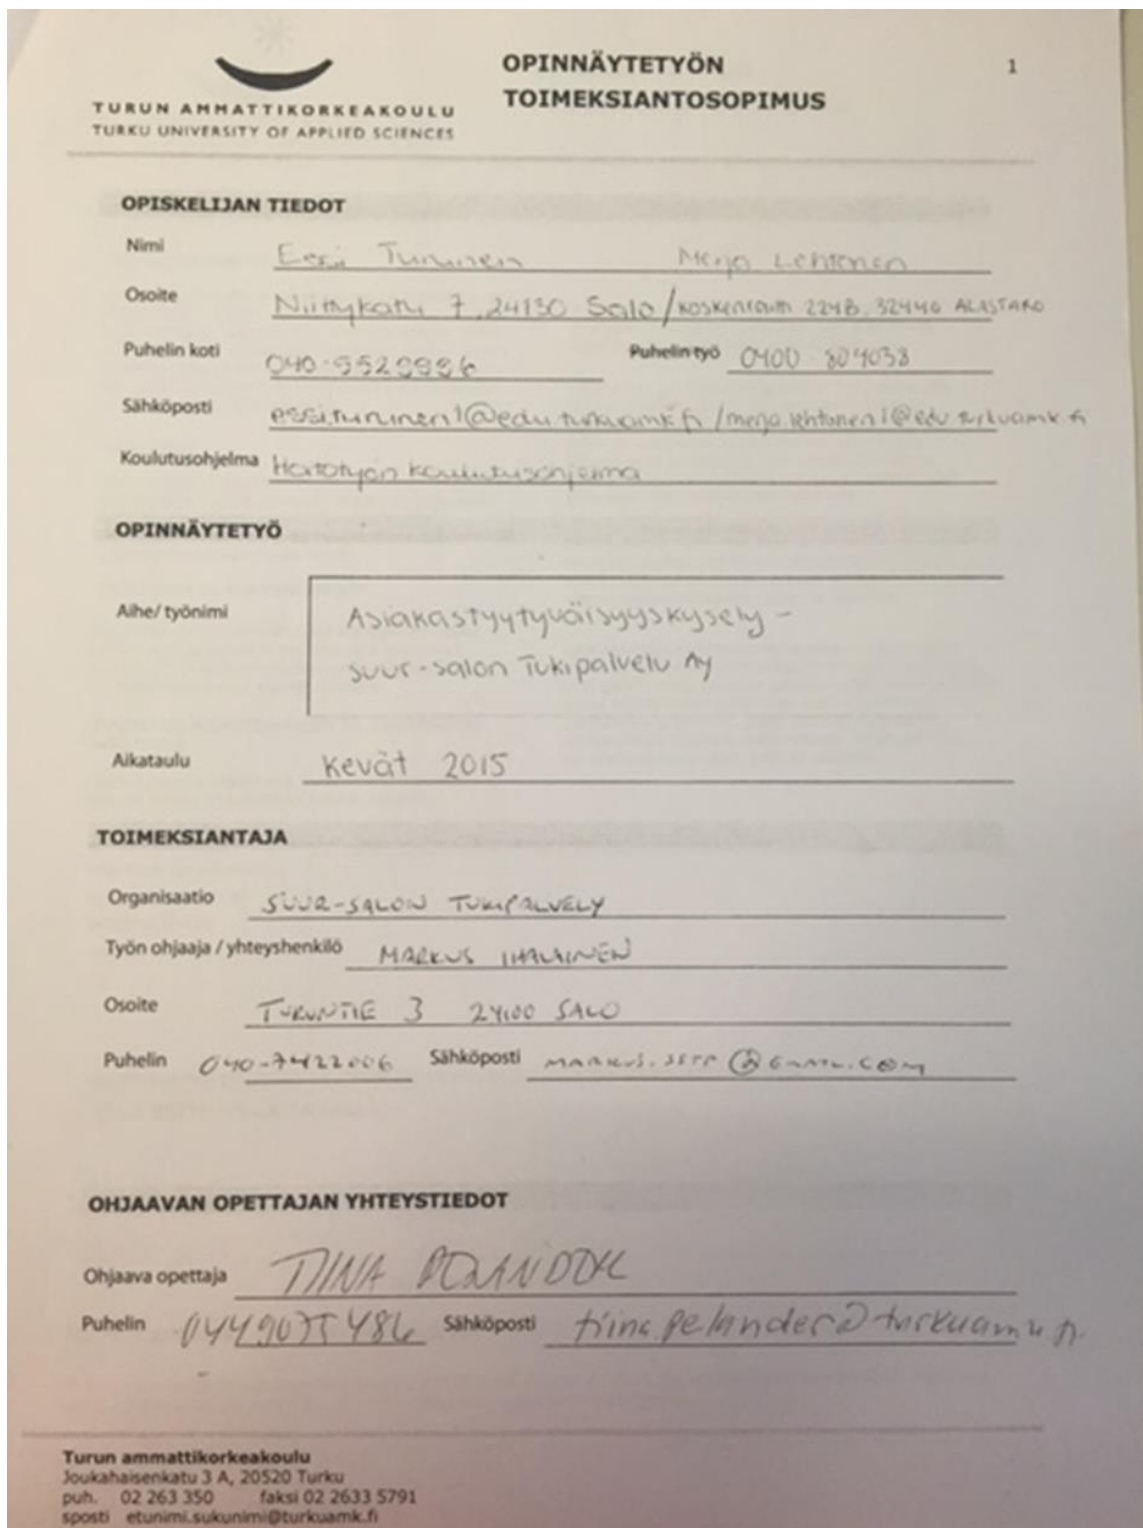 OPINNÄYTETYÖN 1
TOIMEKSIANTOSOPIMUS
TURUN AMMATTIKORKEAKOULU
TURKU UNIVERSITY OF APPLIED SCIENCES
OPISKELIJAN TIEDOT
Nimi Essi Tuninen Merja Lehtonen
Osoite Niittykatu 7, 24130 Salo / 224B, 32440 ALASTARO
Puhelin koti Puhelin työ 0400 804038
Sähköposti essi.tuninen1@edu.turkuamk.fi / merja.lehtonen1@edu.turkuamk.fi
Koulutusohjelma Hoitotyön koulutusohjelma
OPINNÄYTETYÖ
Aihe/ työnimi Asiakastyytyväisyyskysely -
suur-salon Tukipalvelu Ay
Aikataulu Kevät 2015
TOIMEKSIANTAJA
Organisaatio SUUR-SALON TUKIPALVELY
Työn ohjaaja / yhteyshenkilö MARKUS IHALAINEN
Osoite TURUNTIE 3 24100 SALO
Puhelin 040-7422006 Sähköposti MARKUS.SSTP@GMAIL.COM
OHJAAVAN OPETTAJAN YHTEYSTIEDOT
Ohjaava opettaja TIINA
Puhelin 0449075486 Sähköposti tiina.pelander@turkuamk.fi
Turun ammattikorkeakoulu
Joukahaisenkatu 3 A, 20520 Turku
puh. 02 263 350 faksi 02 2633 5791
sposti etunimi.sukunimi@turkuamk.fi